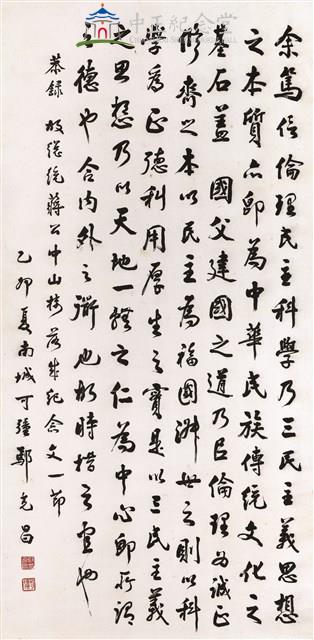 中正紀念堂
余篤信倫理民主科學乃三民主義思想
之本質亦即為中華民族傳統文化之
基石蓋 國父建國之道乃以倫理為誠正
修齊之本以民主為福國淑世之則以科
學為正德利用厚生之實是以三民主義
之思想乃以天地一體之仁為中心即所謂
性之德也合內外之道也故時措之宜也
恭錄 故總統蔣公中山樓落成紀念文一節
乙卯夏南城可 鄢克昌